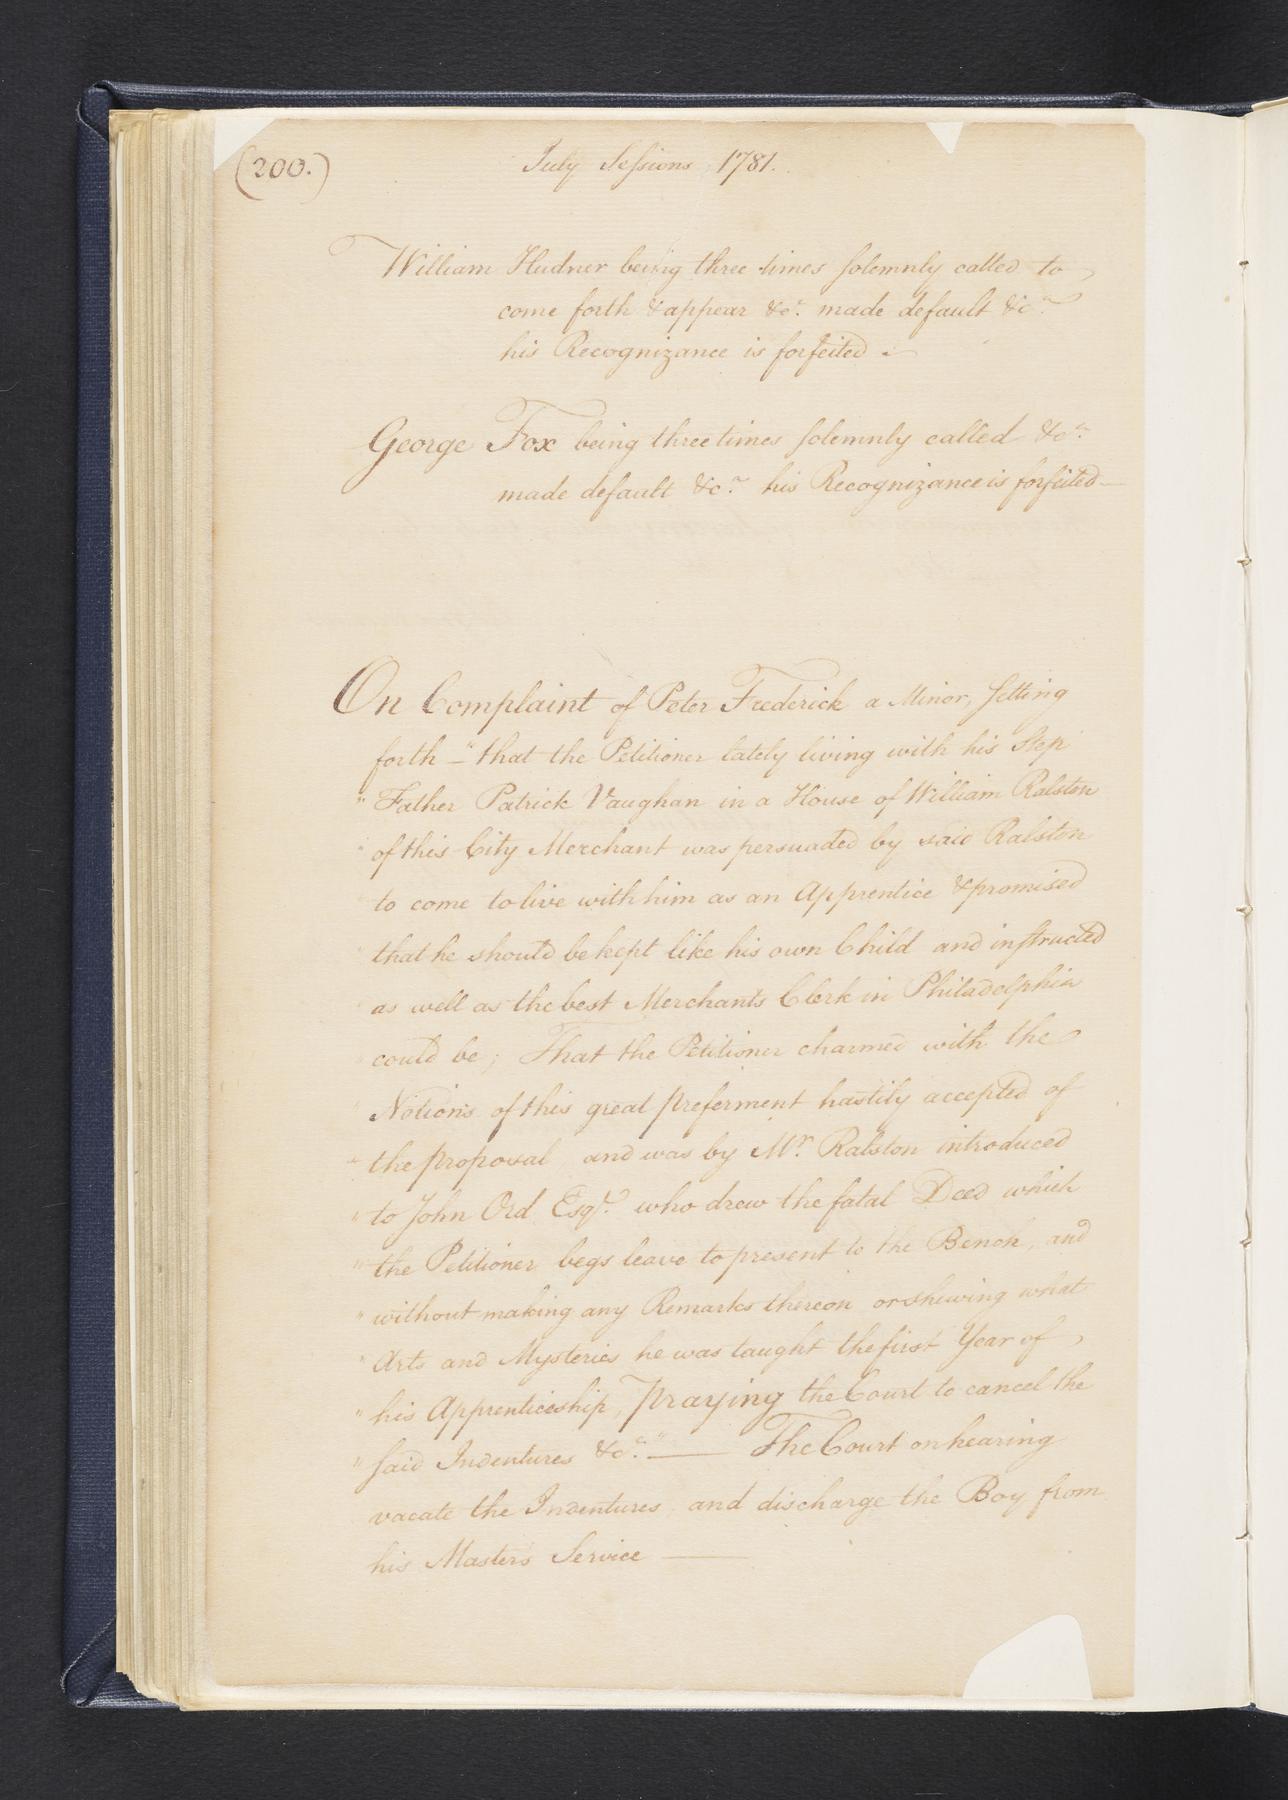 (200.)
July Sessions 1781.
William Hudner being three times solemnly called to
come forth & appear &c. made default &c.
his Recognizance is forfeited
George Fox being three times solemnly called &c.
made default &c. his Recognizance is forfeited—
On Complaint of Peter Frederick a Minor, setting
forth—"that the Petitioner lately living with his Step
" Father Patrick Vaughan in a House of William Ralston
" of this City Merchant was persuaded by said Ralston
to come to live with him as an Apprentice & promised
that he should be kept like his own Child and instructed
as well as the best Merchants Clerk in Philadelphia
" could be; That the Petitioner charmed with the
" Notions of this great preferment hastily accepted of
" the proposal and was by Mr. Ralston introduced
" to John Ord Esqr. who drew the fatal Deed which
" the Petitioner begs leave to present to the Bench, and
" without making any Remarks thereon or shewing what
" Arts and Mysteries he was taught the first Year of
" his Apprenticeship, praying the Court to cancel the
" said Indentures &c." — The Court on hearing
vacate the Indentures and discharge the Boy from
his Masters Service —